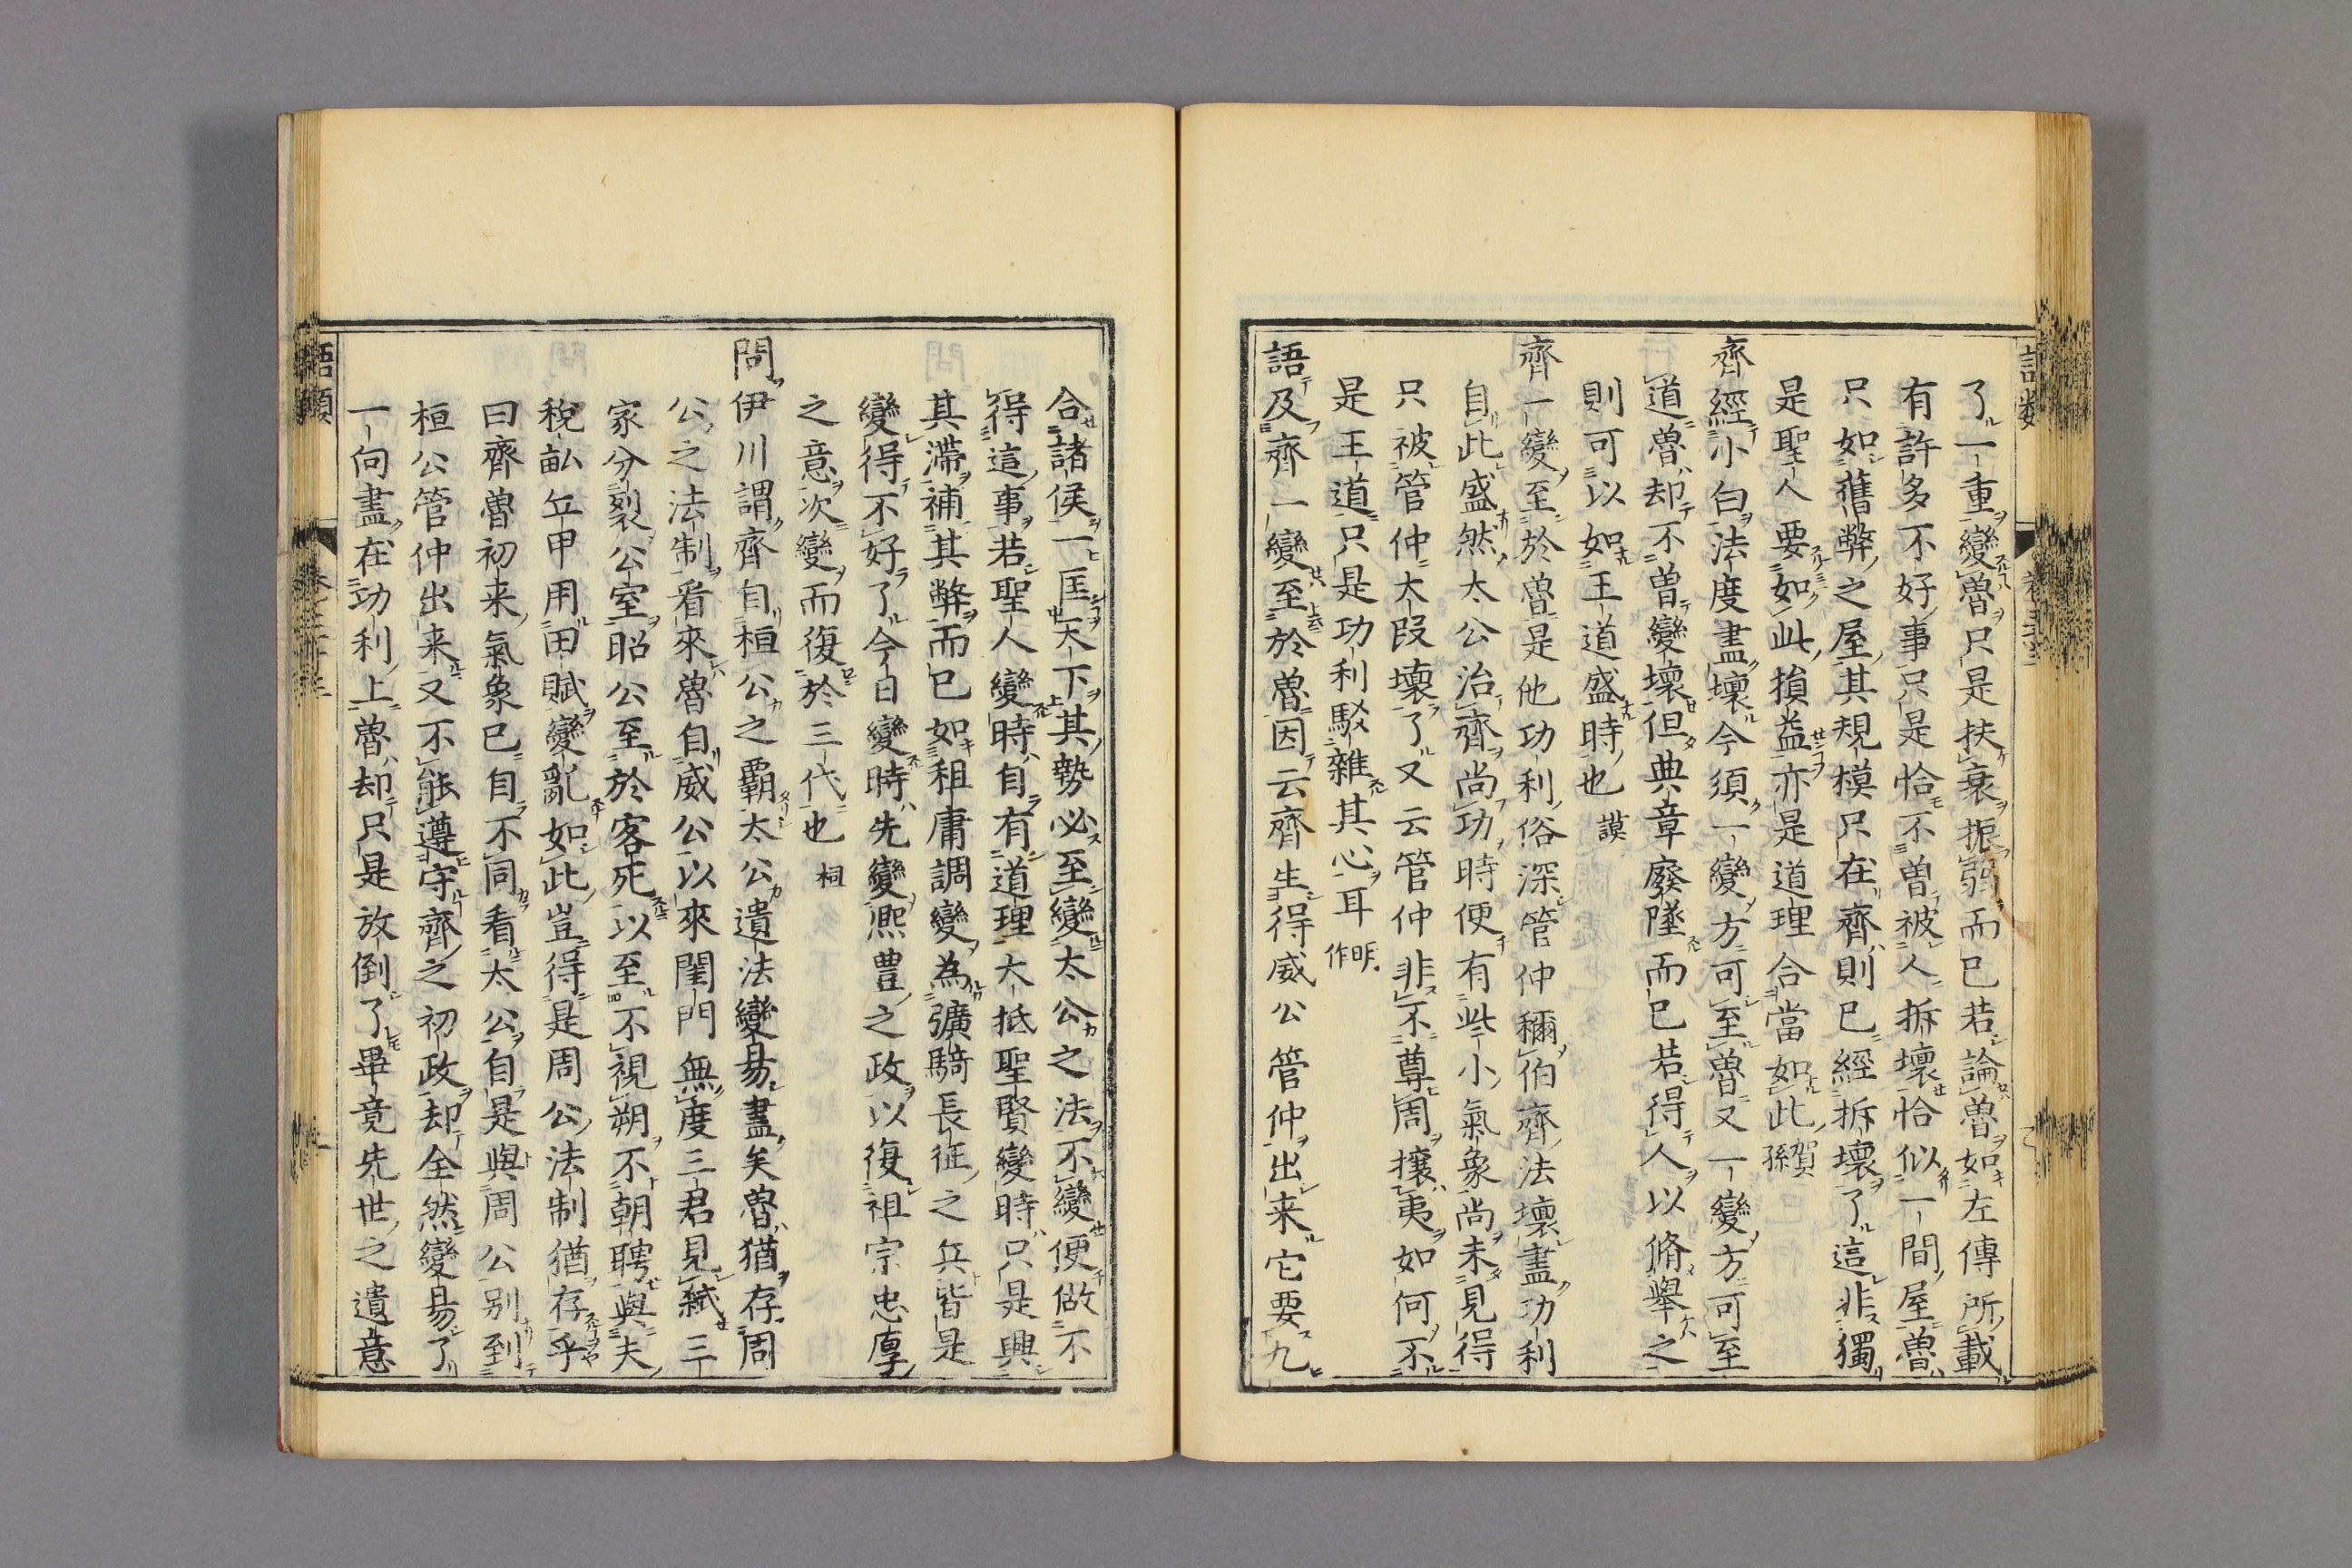 了一重變魯只是扶衰振弱而已若論魯如左傳所載
有許多不好事只是恰不曽被人拆壞恰似一間屋魯
只如舊弊之屋其規模只在齊則已經拆壞了這非獨
是聖人要如此損益亦是道理合當如此賀孫
齊經小白法度盡壞今須一變方可至魯又一變方可至
道魯却不曽變壞但典章廢墜而已若得人以脩舉之
則可以如王道盛時也謨
齊一變至於魯是他功利俗深管仲稱伯齊法壞盡功利
自此盛然太公治齊尚功時便有些小氣象尚未見得
只被管仲大段壞了又云管仲非不尊周攘夷如何不
是王道只是功利駁雜其心耳明作
語及齊一變至於魯因云齊生得威公管仲出来它要九
合諸侯一匡天下其勢必至變太公之法不變便做不
得這事若聖人變時自有道理大抵聖賢變時只是興
其滯補其弊而已如租庸調變為彍騎長征之兵皆是
變得不好了今日變時先變熈豊之政以復祖宗忠厚
之意次變而復於三代也祠
問伊川謂齊自桓公之霸太公遺法變易盡矣魯猶存周
公之法制看來魯自威公以來閨門無度三君見弑三
家分裂公室昭公至於客死以至不視朔不朝聘與夫
稅畝丘甲用田賦變亂如此豈得是周公法制猶存乎
曰齊魯初来氣象已自不同看太公自是與周公别到
桓公管仲出来又不能遵守齊之初政却全然變易了
一向盡在功利上魯却只是放倒了畢竟先世之遺意
語類